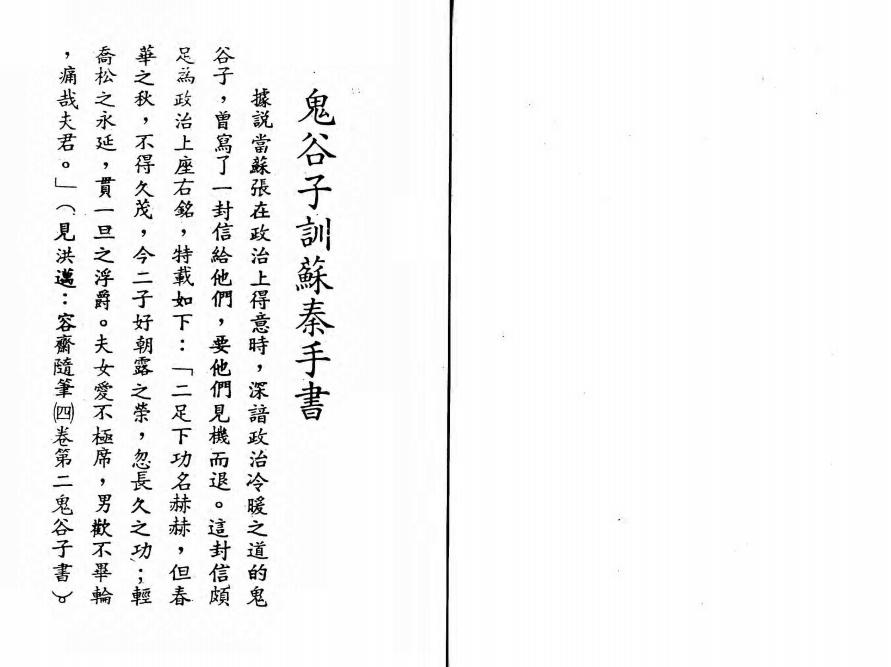 鬼谷子訓蘇秦手書
據説當蘇張在政治上得意時，深諳政治冷暖之道的鬼
谷子，曾寫了一封信給他們，要他們見機而退。這封信頗
足為政治上座右銘，特載如下：「二足下功名赫赫，但春
華之秋，不得久茂，今二子好朝露之榮，忽長久之功；輕
喬松之永延，貫一旦之浮爵。夫女愛不極席，男歡不畢輪
，痛哉夫君。」（見洪邁：容齋隨筆㈣卷第二鬼谷子書）